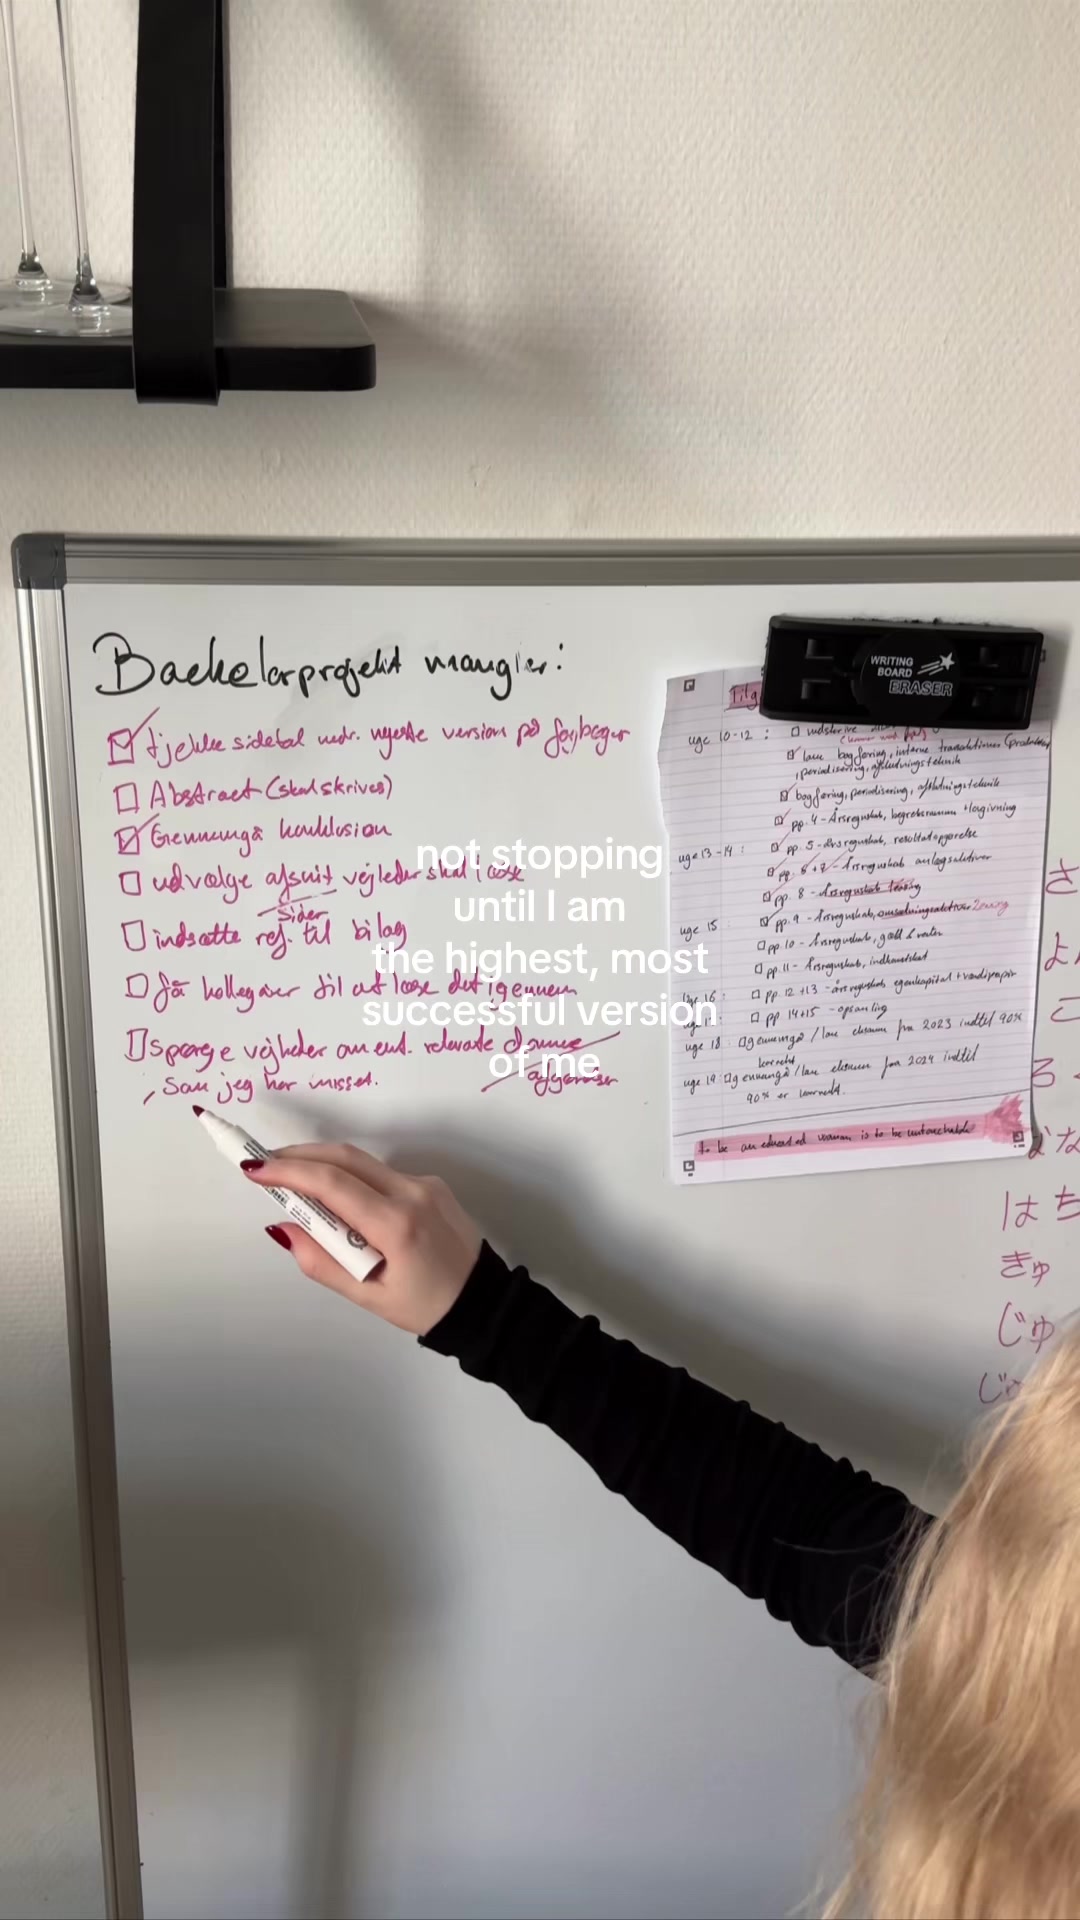 Bachelorprojekt mangler:
tjekke sidetal vedr. nyeste version på fagbøger
Abstract (skal skrives)
Gennemgå konklusion
udvælge afsnit vejleder skal læse
sider
indsætte ref. til bilag
få kollegaer til at læse det igennem
spørge vejleder om evt. relevante domme
afgørelser
som jeg har misset.
not stopping
until I am
the highest, most
successful version
of me
WRITING
BOARD
ERASER
uge 10-12 :
lave bogføring, interne transaktioner
, periodisering, afslutningsteknik
bogføring, periodisering, afslutningsteknik
pp. 4 - Årsregnskab, begrebsramme + lovgivning
uge 13-14 :
pp. 5 - årsregnskab, resultatopgørelse
pp. 6+7 - Årsregnskab anlægsaktiver
pp. 8 - Årsregnskab leasing
uge 15
pp. 9 - Årsregnskab, omsætningsaktiver
pp. 10 - Årsregnskab, gæld & renter
pp. 11 - Årsregnskab, indkomstskat
uge 16 :
pp. 12+13 - årsregnskab egenkapital + værdipapir
pp 14+15 - opsamling
uge 18 : gennemgå / lave eksamen fra 2023 indtil 90%
korrekt
uge 19 gennemgå / lave eksamen fra 2024 indtil
90% er korrekt.
to be an educated woman is to be untouchable
さ
よ
こ
ろ
な
はち
きゅ
じゅ